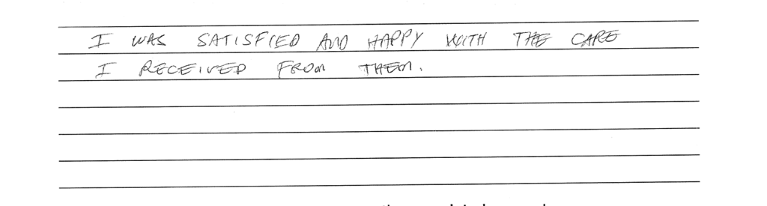 I WAS SATISFIED AND HAPPY WITH THE CARE
I RECEIVED FROM THEM.